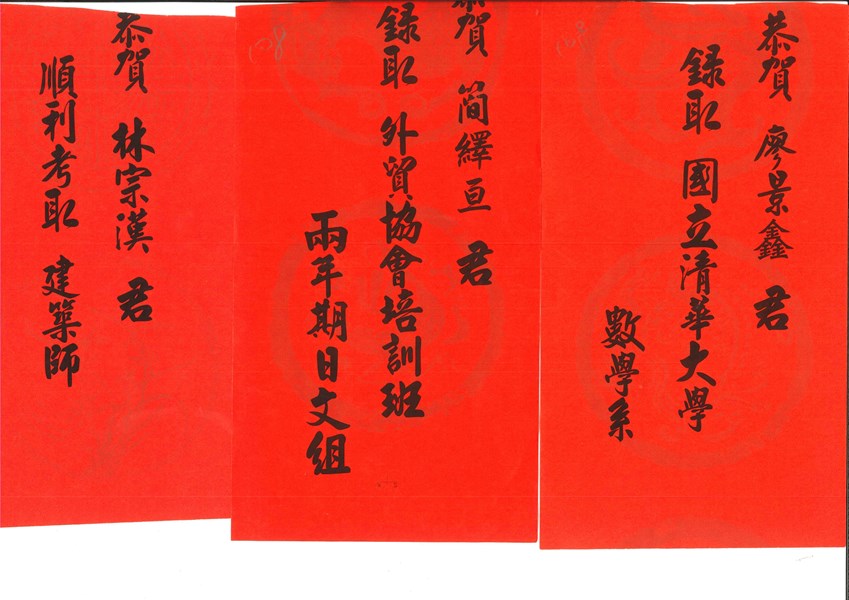 恭賀 廖景鑫 君
錄取 國立清華大學
數學系
恭賀 簡繹亘 君
錄取 外貿協會培訓班
兩年期日文組
恭賀 林宗漢 君
順利考取 建築師